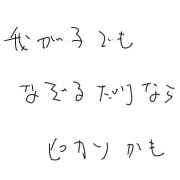 我が子でも
なぞるだけなら
ピカソかも